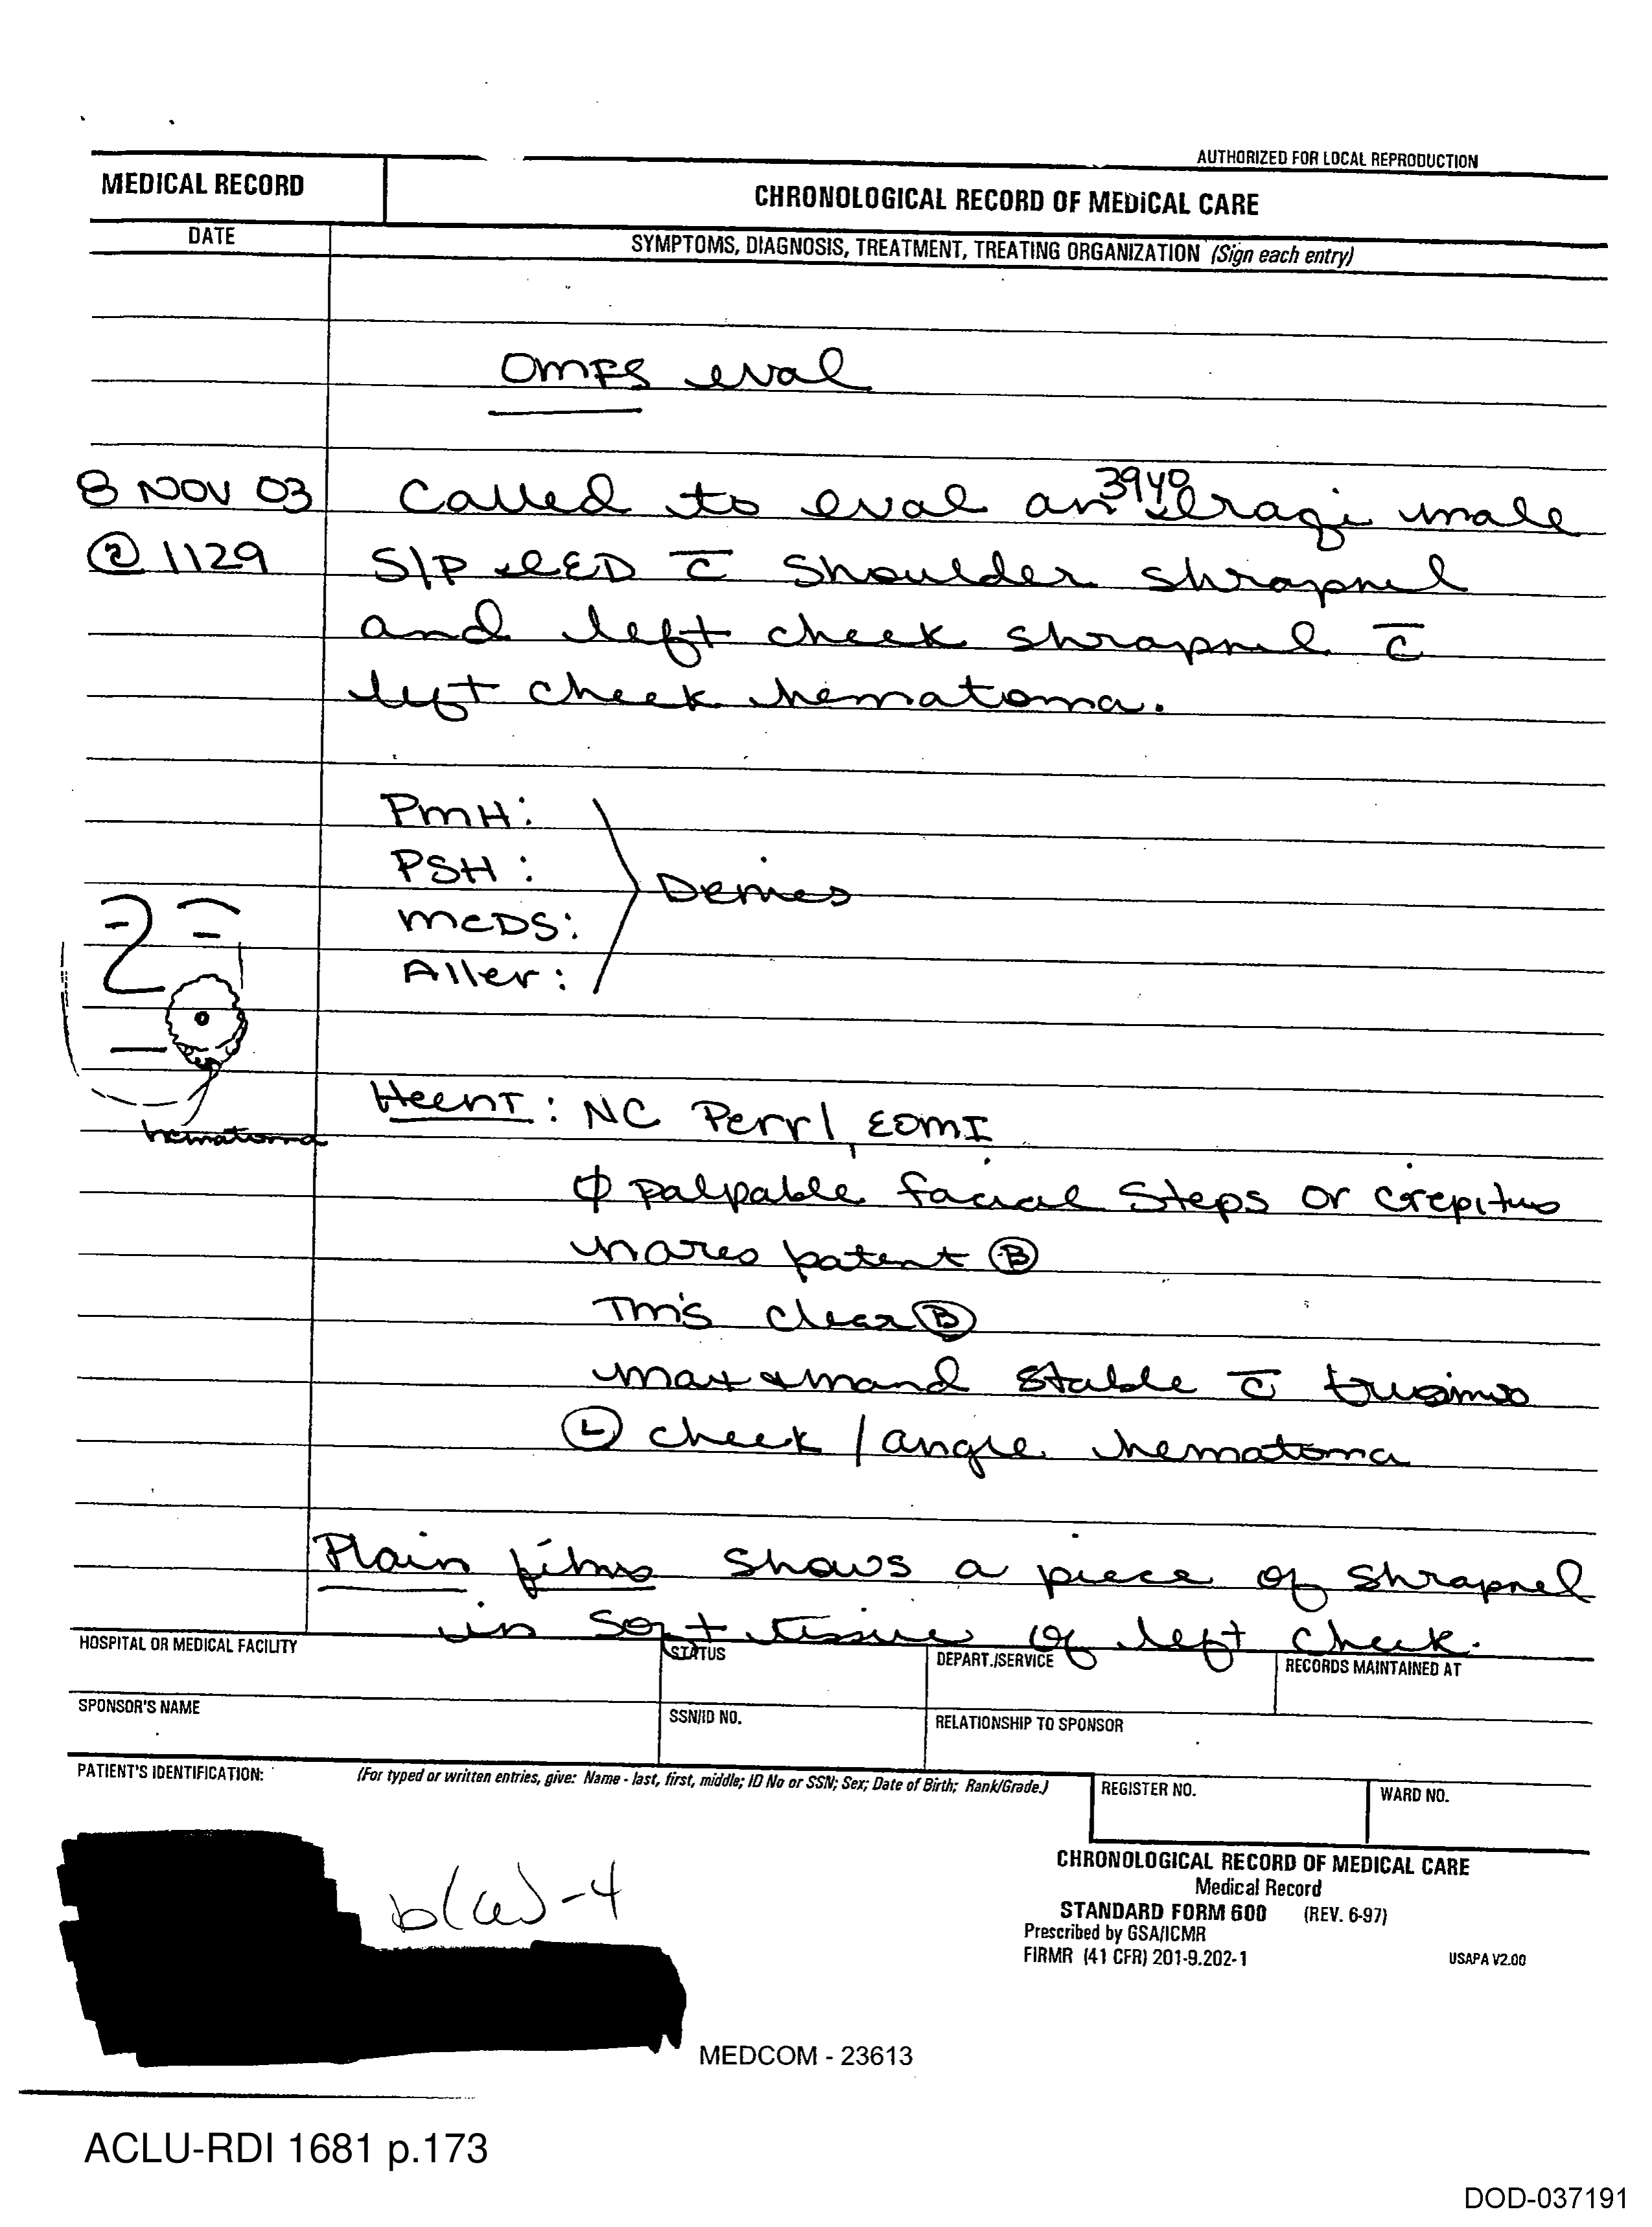 AUTHORIZED FOR LOCAL REPRODUCTION
MEDICAL RECORD
CHRONOLOGICAL RECORD OF MEDICAL CARE
DATE
SYMPTOMS, DIAGNOSIS, TREATMENT, TREATING ORGANIZATION (Sign each entry)
OMFS eval
8 NOV 03 Called to eval an 39yo Iraqi male
@ 1129 S/P IED c̄ shoulder shrapnel
and left cheek shrapnel c̄
left cheek hematoma.
PMH:
PSH:
MEDS:
Aller:
Denies
hematoma
HEENT: NC Perrl, EOMI
ϕ palpable facial steps or crepitus
nares patent Ⓑ
TM's clear Ⓑ
max + mand stable c̄ trismus
Ⓛ cheek / angle hematoma
Plain films shows a piece of shrapnel
in soft tissue of left cheek.
HOSPITAL OR MEDICAL FACILITY
STATUS
DEPART./SERVICE
RECORDS MAINTAINED AT
SPONSOR'S NAME
SSN/ID NO.
RELATIONSHIP TO SPONSOR
PATIENT'S IDENTIFICATION:
(For typed or written entries, give: Name - last, first, middle; ID No or SSN; Sex; Date of Birth; Rank/Grade.)
REGISTER NO.
WARD NO.
b(6)-4
CHRONOLOGICAL RECORD OF MEDICAL CARE
Medical Record
STANDARD FORM 600 (REV. 6-97)
Prescribed by GSA/ICMR
FIRMR (41 CFR) 201-9.202-1
USAPA V2.00
MEDCOM - 23613
ACLU-RDI 1681 p.173
DOD-037191